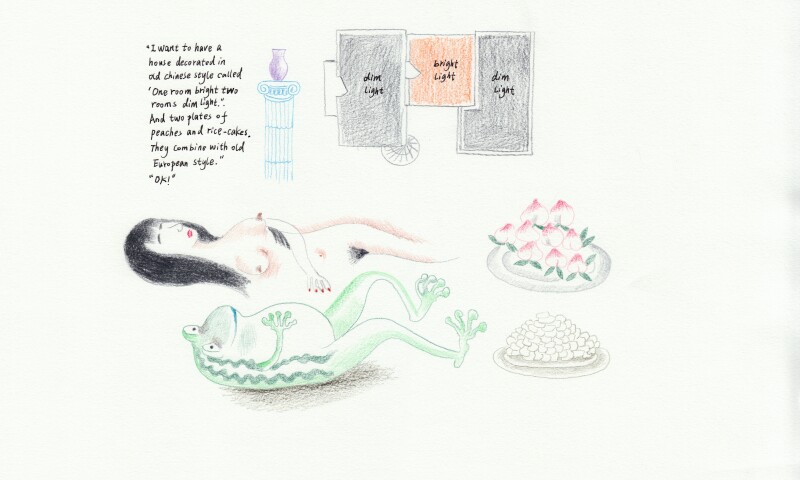 "I want to have a
house decorated in
old chinese style called
'One room bright two
rooms dim light.'.
And two plates of
peaches and rice-cakes.
They combine with old
European style."
"OK!"
dim
light
bright
light
dim
light